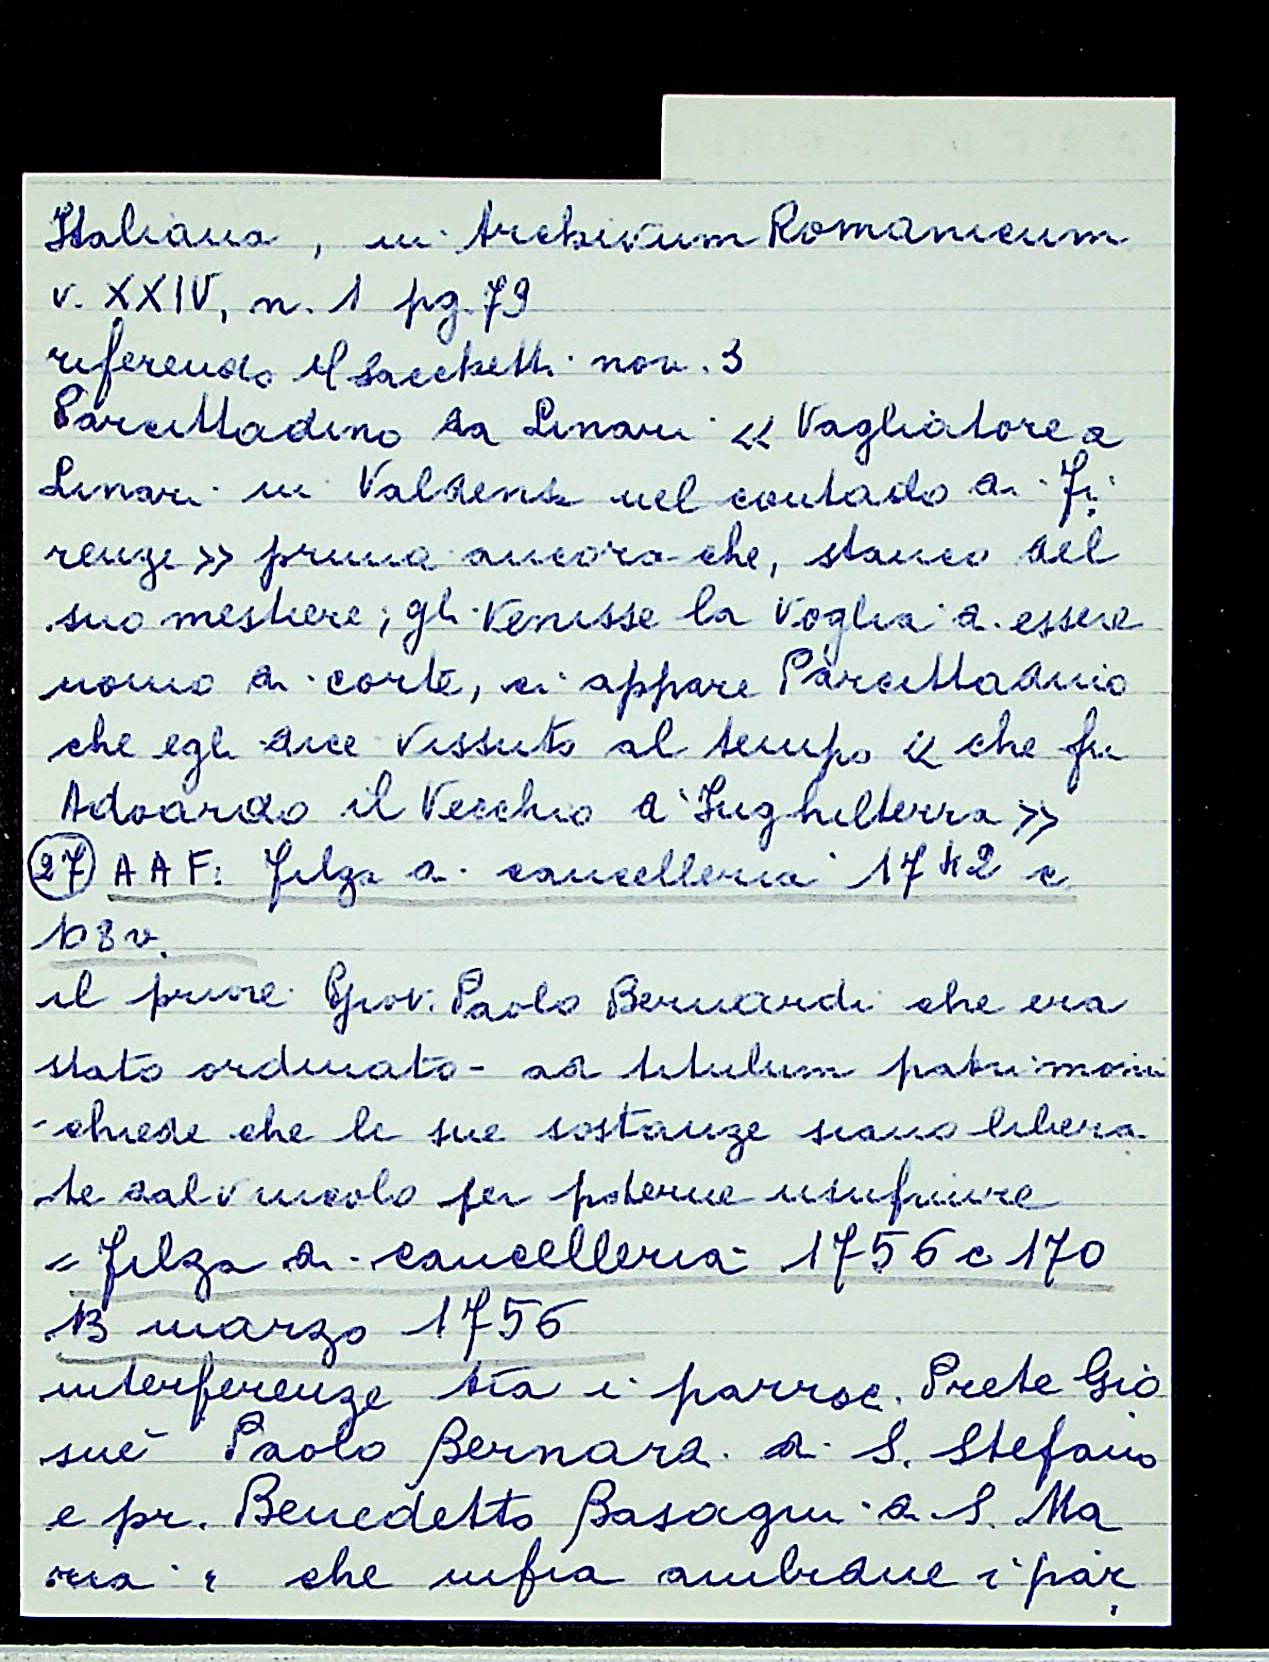 Italiana, in Archivum Romanicum
v. XXIV, n. 1 pg. 79
riferendo il Sacchetti nov. 3
Parcittadino da Linari « Vagliatore a
Linari in Valdensa nel contado di Fi
renze » prima ancora che, stanco del
suo mestiere, gli venisse la voglia di essere
uomo di corte, ci appare Parcittadino
che egli dice vissuto al tempo « che fu
Adoardo il Vecchio d'Inghilterra »
27 AAF: Filza di cancelleria 1742 c
108 v.
il priore Giov. Paolo Bernardi che era
stato ordinato - ad titulum patrimonii
- chiede che le sue sostanze siano libera
te dal vincolo per poterne usufruire
= Filza di cancelleria 1756 c 170
13 marzo 1756
interferenze tra i parroc. Prete Gio
suè Paolo Bernardi di S. Stefano
e pr. Benedetto Basagni di S. Ma
ria che infra ambedue i par